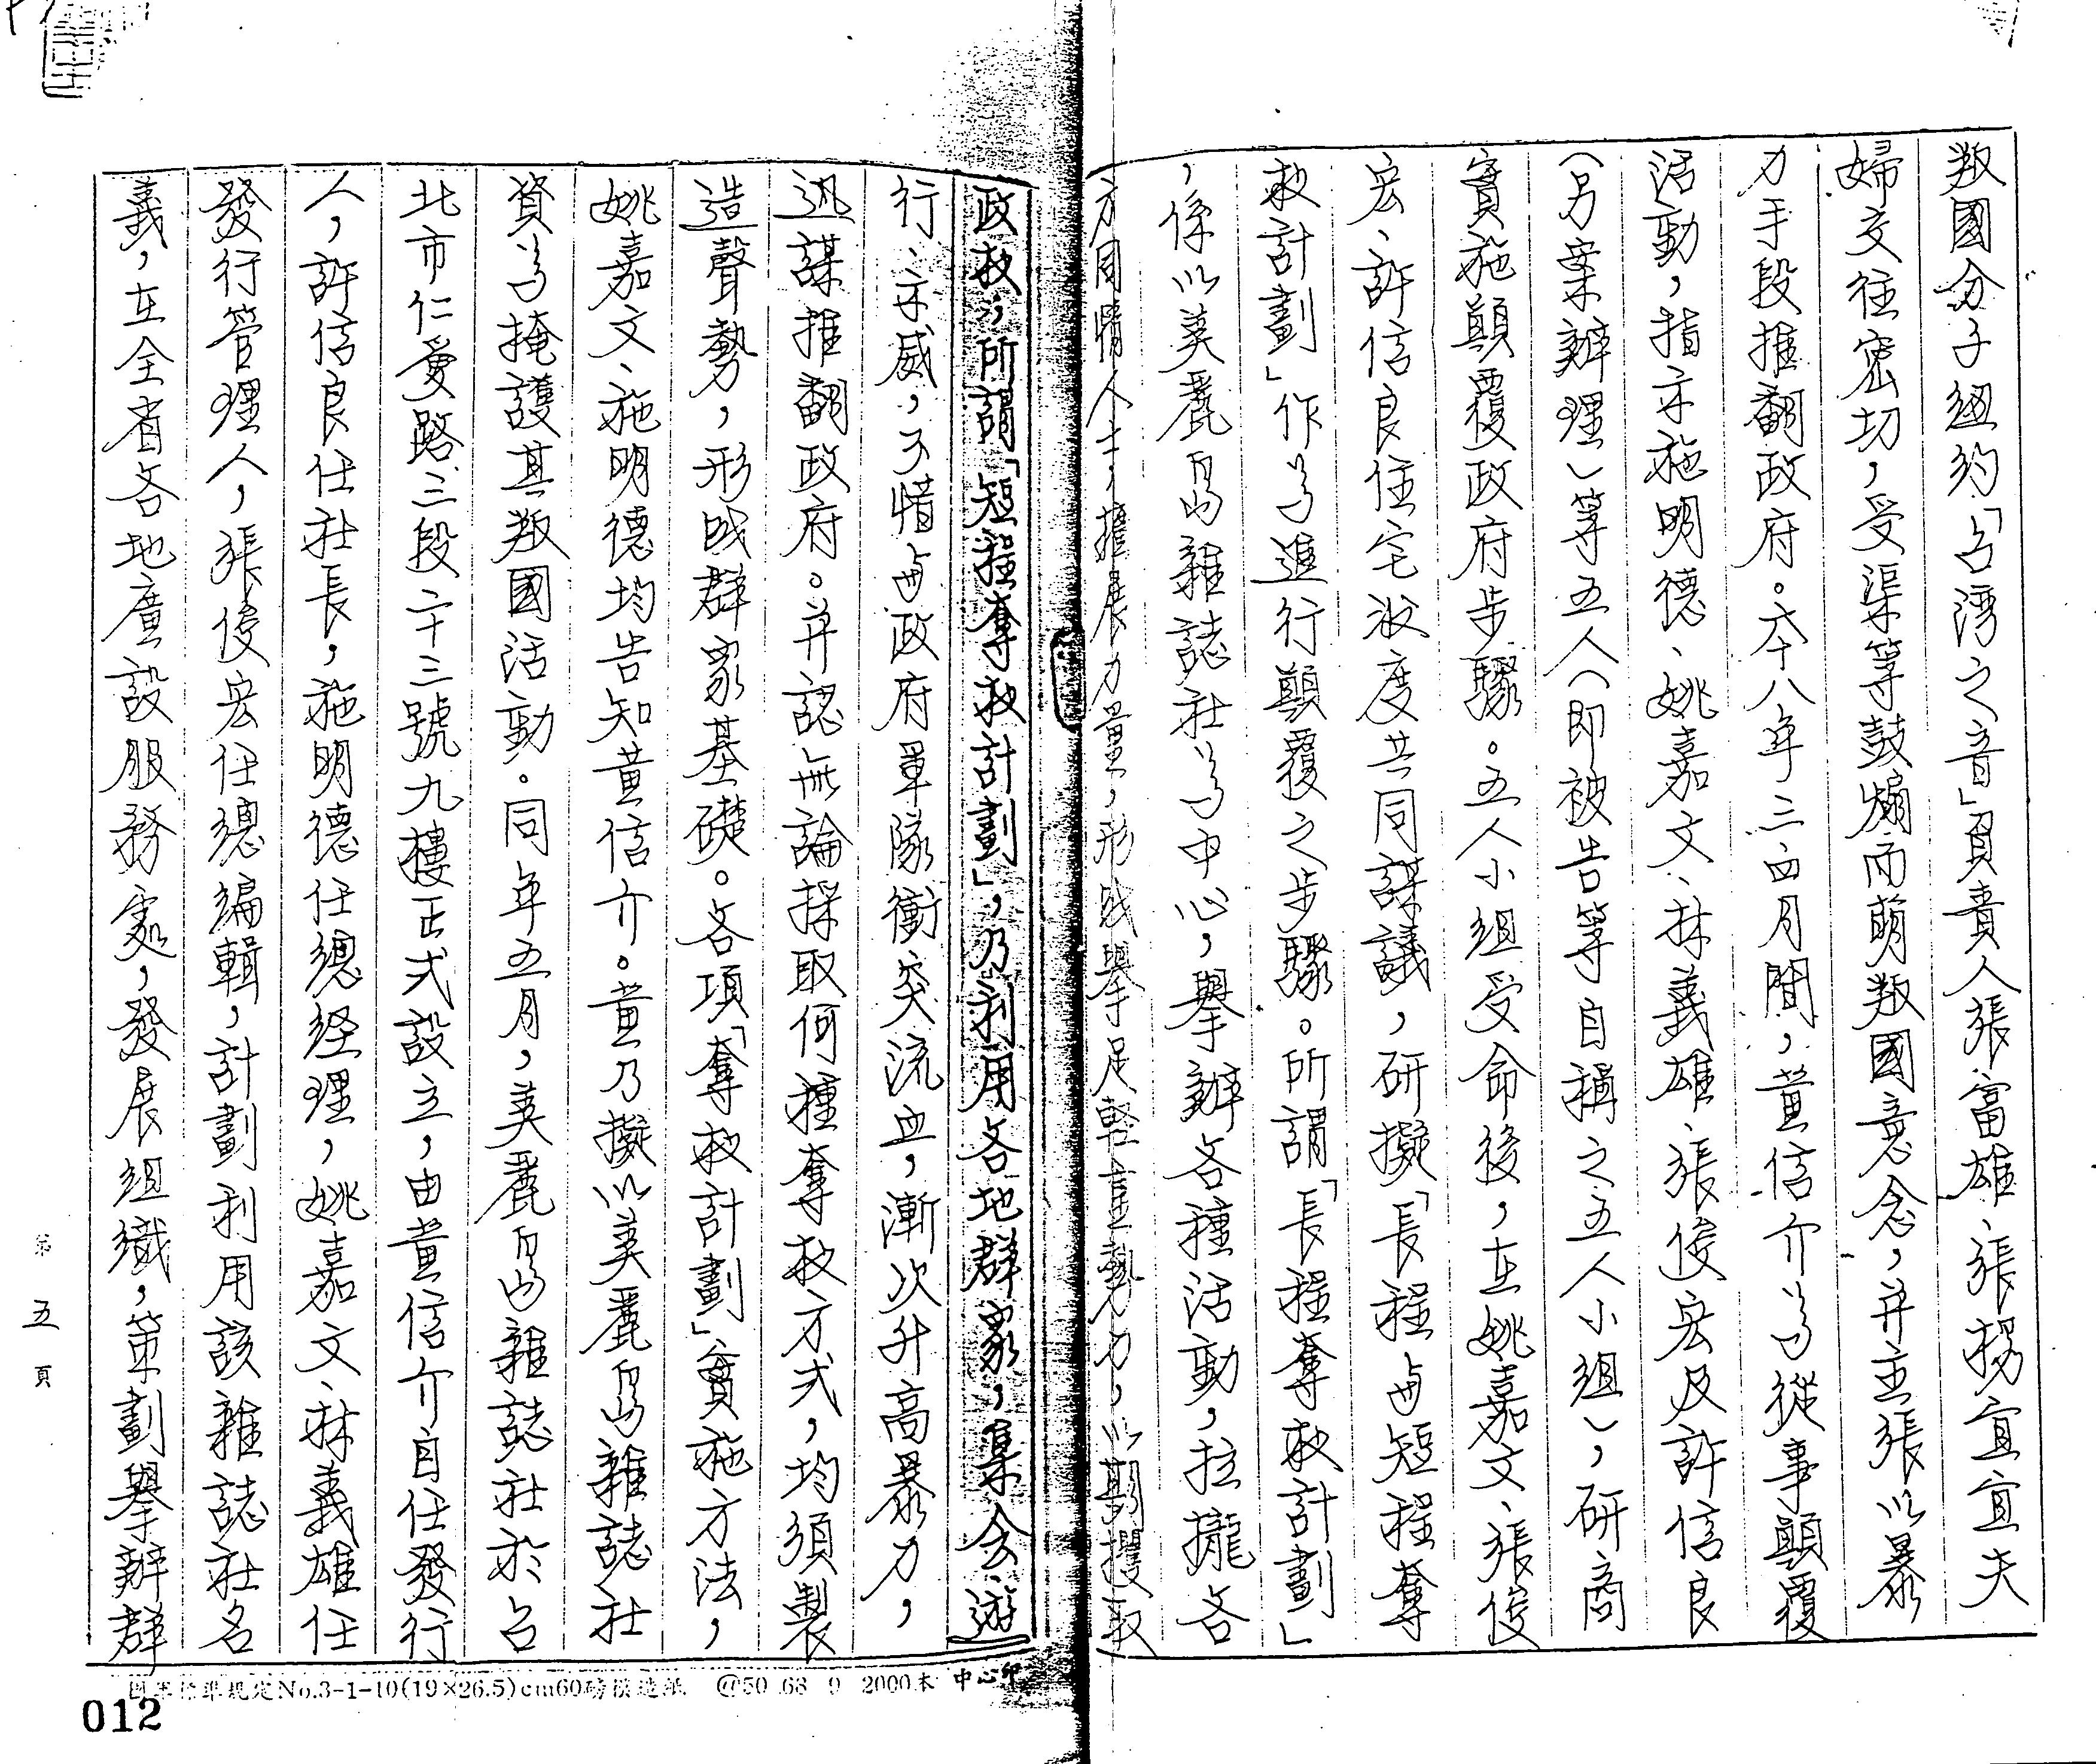 叛國分子紐約「台湾之音」負責人張富雄、張楊宜宜夫
婦交往密切，受渠等鼓煽而萌叛國意念，并主張以暴
力手段推翻政府。六十八年三四月間，黃信介為從事顛覆
活動，指示施明德、姚嘉文、林義雄、張俊宏及許信良
（另案辦理）等五人（即被告等自稱之五人小組），研商
實施顛覆政府步驟。五人小組受命後，在姚嘉文、張俊
宏、許信良住宅数度共同謀議，研擬「長程与短程奪
权計劃」作為進行顛覆之步驟。所謂「長程奪权計劃」
，係以美麗島雜誌社為中心，舉辦各種活動，拉攏各
方同情人士，擴展力量，形成舉足輕重勢力，以期攫取
政权；所謂「短程奪权計劃」，乃利用各地群眾，集会、遊
行、示威，不惜与政府軍隊衝突流血，漸次升高暴力，
迅謀推翻政府。并認無論採取何種奪权方式，均須製
造聲勢，形成群眾基礎。各項「奪权計劃」實施方法，
姚嘉文、施明德均告知黃信介。黃乃擬以美麗島雜誌社
資為掩護其叛國活動。同年五月，美麗島雜誌社於台
北市仁愛路三段二十三號九樓正式設立，由黃信介自任發行
人，許信良任社長，施明德任總經理，姚嘉文、林義雄任
發行管理人，張俊宏任總編輯，計劃利用該雜誌社名
義，在全省各地廣設服務處，發展組織，策劃舉辦群
第五頁
No.3-1-10(19×26.5)cm60磅模造紙 @50 68 9 2000本 中心印
012